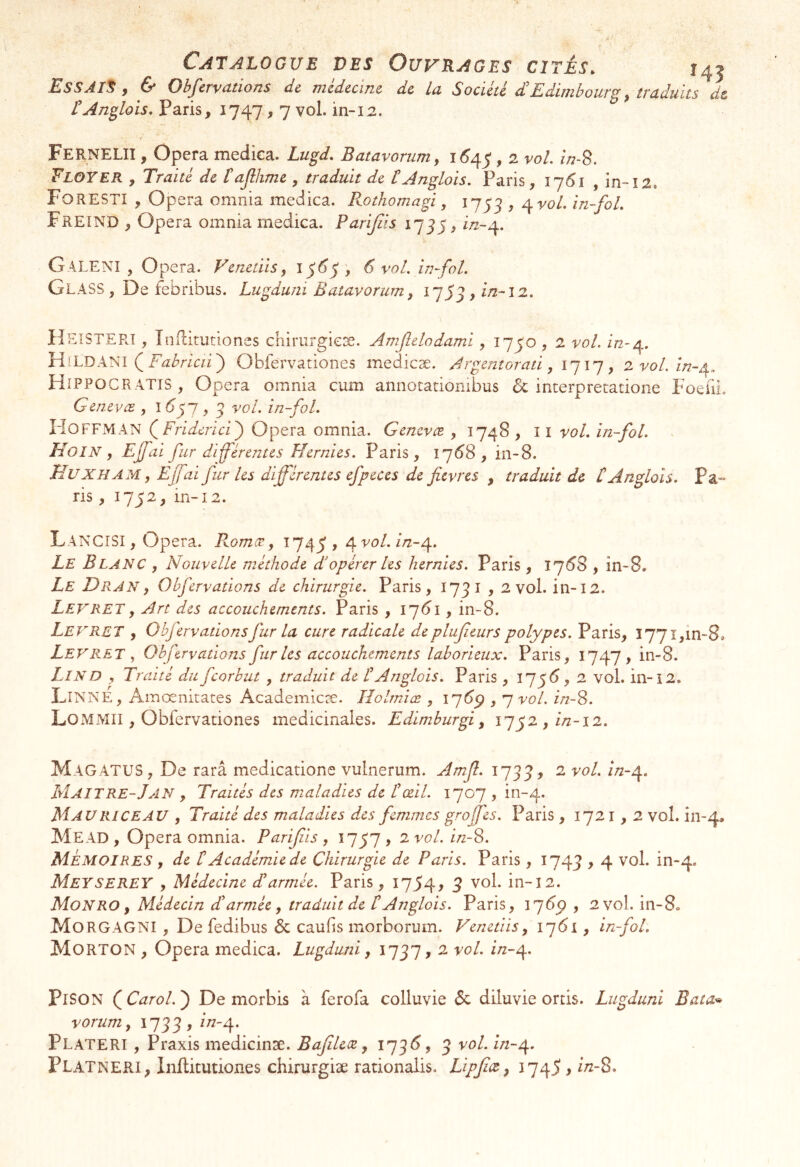 CATALOGUE DES OUVRAGES CITÉS. 143
ESSAIS, & Obſervations de médecine de la Société d'Edimbourg, traduits de
l'Anglois. Paris, 1747, 7 vol. in-12.
FERNELII, Opera medica. Lugd. Batavorum, 1645, 2 vol. in-8.
FLOYER, Traité de l'aſthme, traduit de l'Anglois. Paris, 1761, in-12.
FORESTI, Opera omnia medica. Rothomagi, 1753, 4 vol. in-fol.
FREIND, Opera omnia medica. Pariſiis 1735, in-4.
GALENI, Opera. Venetiis, 1565, 6 vol. in-fol.
GLASS, De febribus. Lugduni Batavorum, 1753, in-12.
HEISTERI, Inſtitutiones chirurgicæ. Amſtelodami, 1750, 2 vol. in-4.
HILDANI (Fabricii) Obſervationes medicæ. Argentorati, 1717, 2 vol. in-4.
HIPPOCRATIS, Opera omnia cum annotationibus & interpretatione Foeſii.
Genevæ, 1657, 3 vol. in-fol.
HOFFMAN (Friderici) Opera omnia. Genevæ, 1748, 11 vol. in-fol.
HOIN, Eſſai ſur différentes Hernies. Paris, 1768, in-8.
HUXHAM, Eſſai ſur les différentes eſpeces de fievres, traduit de l'Anglois. Pa-
ris, 1752, in-12.
LANCISI, Opera. Romæ, 1745, 4 vol. in-4.
LE BLANC, Nouvelle méthode d'opérer les hernies. Paris, 1768, in-8.
LE DRAN, Obſervations de chirurgie. Paris, 1731, 2 vol. in-12.
LEVRET, Art des accouchements. Paris, 1761, in-8.
LEVRET, Obſervations ſur la cure radicale de pluſieurs polypes. Paris, 1771, in-8.
LEVRET, Obſervations ſur les accouchements laborieux. Paris, 1747, in-8.
LIND, Traité du ſcorbut, traduit de l'Anglois. Paris, 1756, 2 vol. in-12.
LINNÉ, Amœnitates Academicæ. Holmiæ, 1769, 7 vol. in-8.
LOMMII, Obſervationes medicinales. Edimburgi, 1752, in-12.
MAGATUS, De rarâ medicatione vulnerum. Amſt. 1733, 2 vol. in-4.
MAITRE-JAN, Traités des maladies de l'œil. 1707, in-4.
MAURICEAU, Traité des maladies des femmes groſſes. Paris, 1721, 2 vol. in-4.
MEAD, Opera omnia. Pariſiis, 1757, 2 vol. in-8.
MÉMOIRES, de l'Académie de Chirurgie de Paris. Paris, 1743, 4 vol. in-4.
MEYSEREY, Médecine d'armée. Paris, 1754, 3 vol. in-12.
MONRO, Médecin d'armée, traduit de l'Anglois. Paris, 1769, 2 vol. in-8.
MORGAGNI, De ſedibus & cauſis morborum. Venetiis, 1761, in-fol.
MORTON, Opera medica. Lugduni, 1737, 2 vol. in-4.
PISON (Carol.) De morbis à ſeroſa colluvie & diluvie ortis. Lugduni Bata-
vorum, 1733, in-4.
PLATERI, Praxis medicinæ. Baſileæ, 1736, 3 vol. in-4.
PLATNERI, Inſtitutiones chirurgiæ rationalis. Lipſiæ, 1745, in-8.